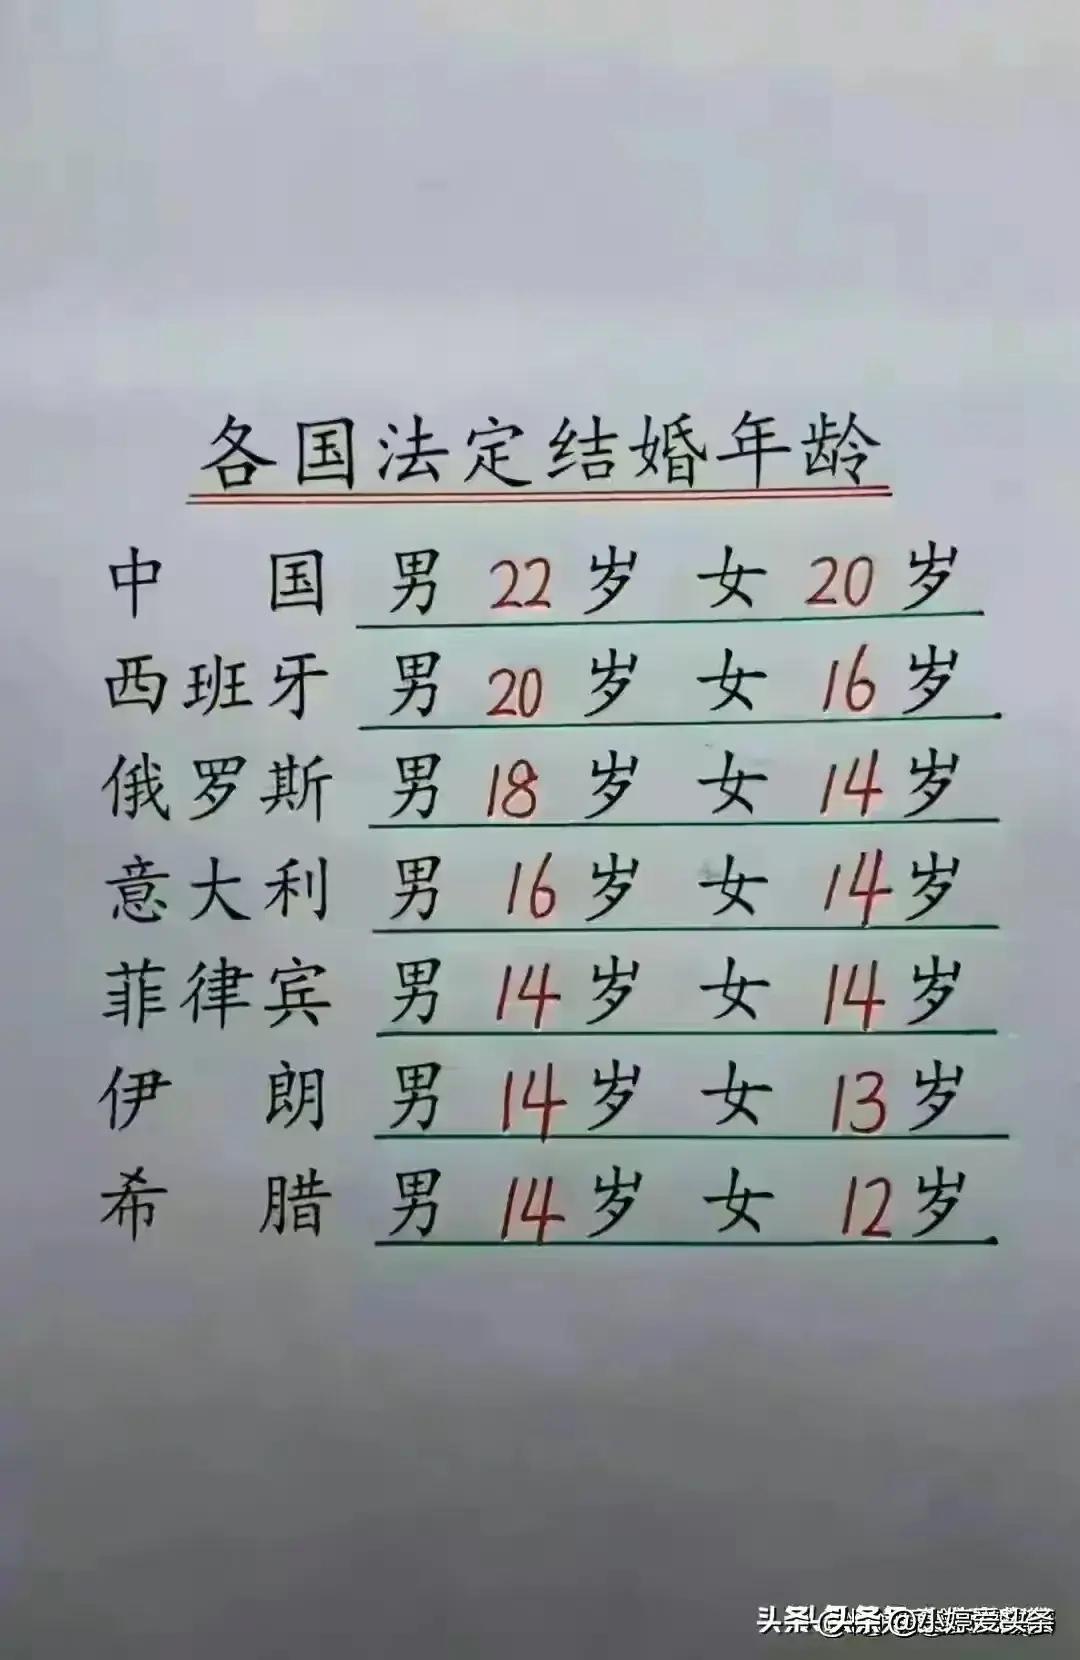 各国法定结婚年龄
中国 男 22 岁 女 20 岁
西班牙 男 20 岁 女 16 岁
俄罗斯 男 18 岁 女 14 岁
意大利 男 16 岁 女 14 岁
菲律宾 男 14 岁 女 14 岁
伊朗 男 14 岁 女 13 岁
希腊 男 14 岁 女 12 岁
@小婷爱头条